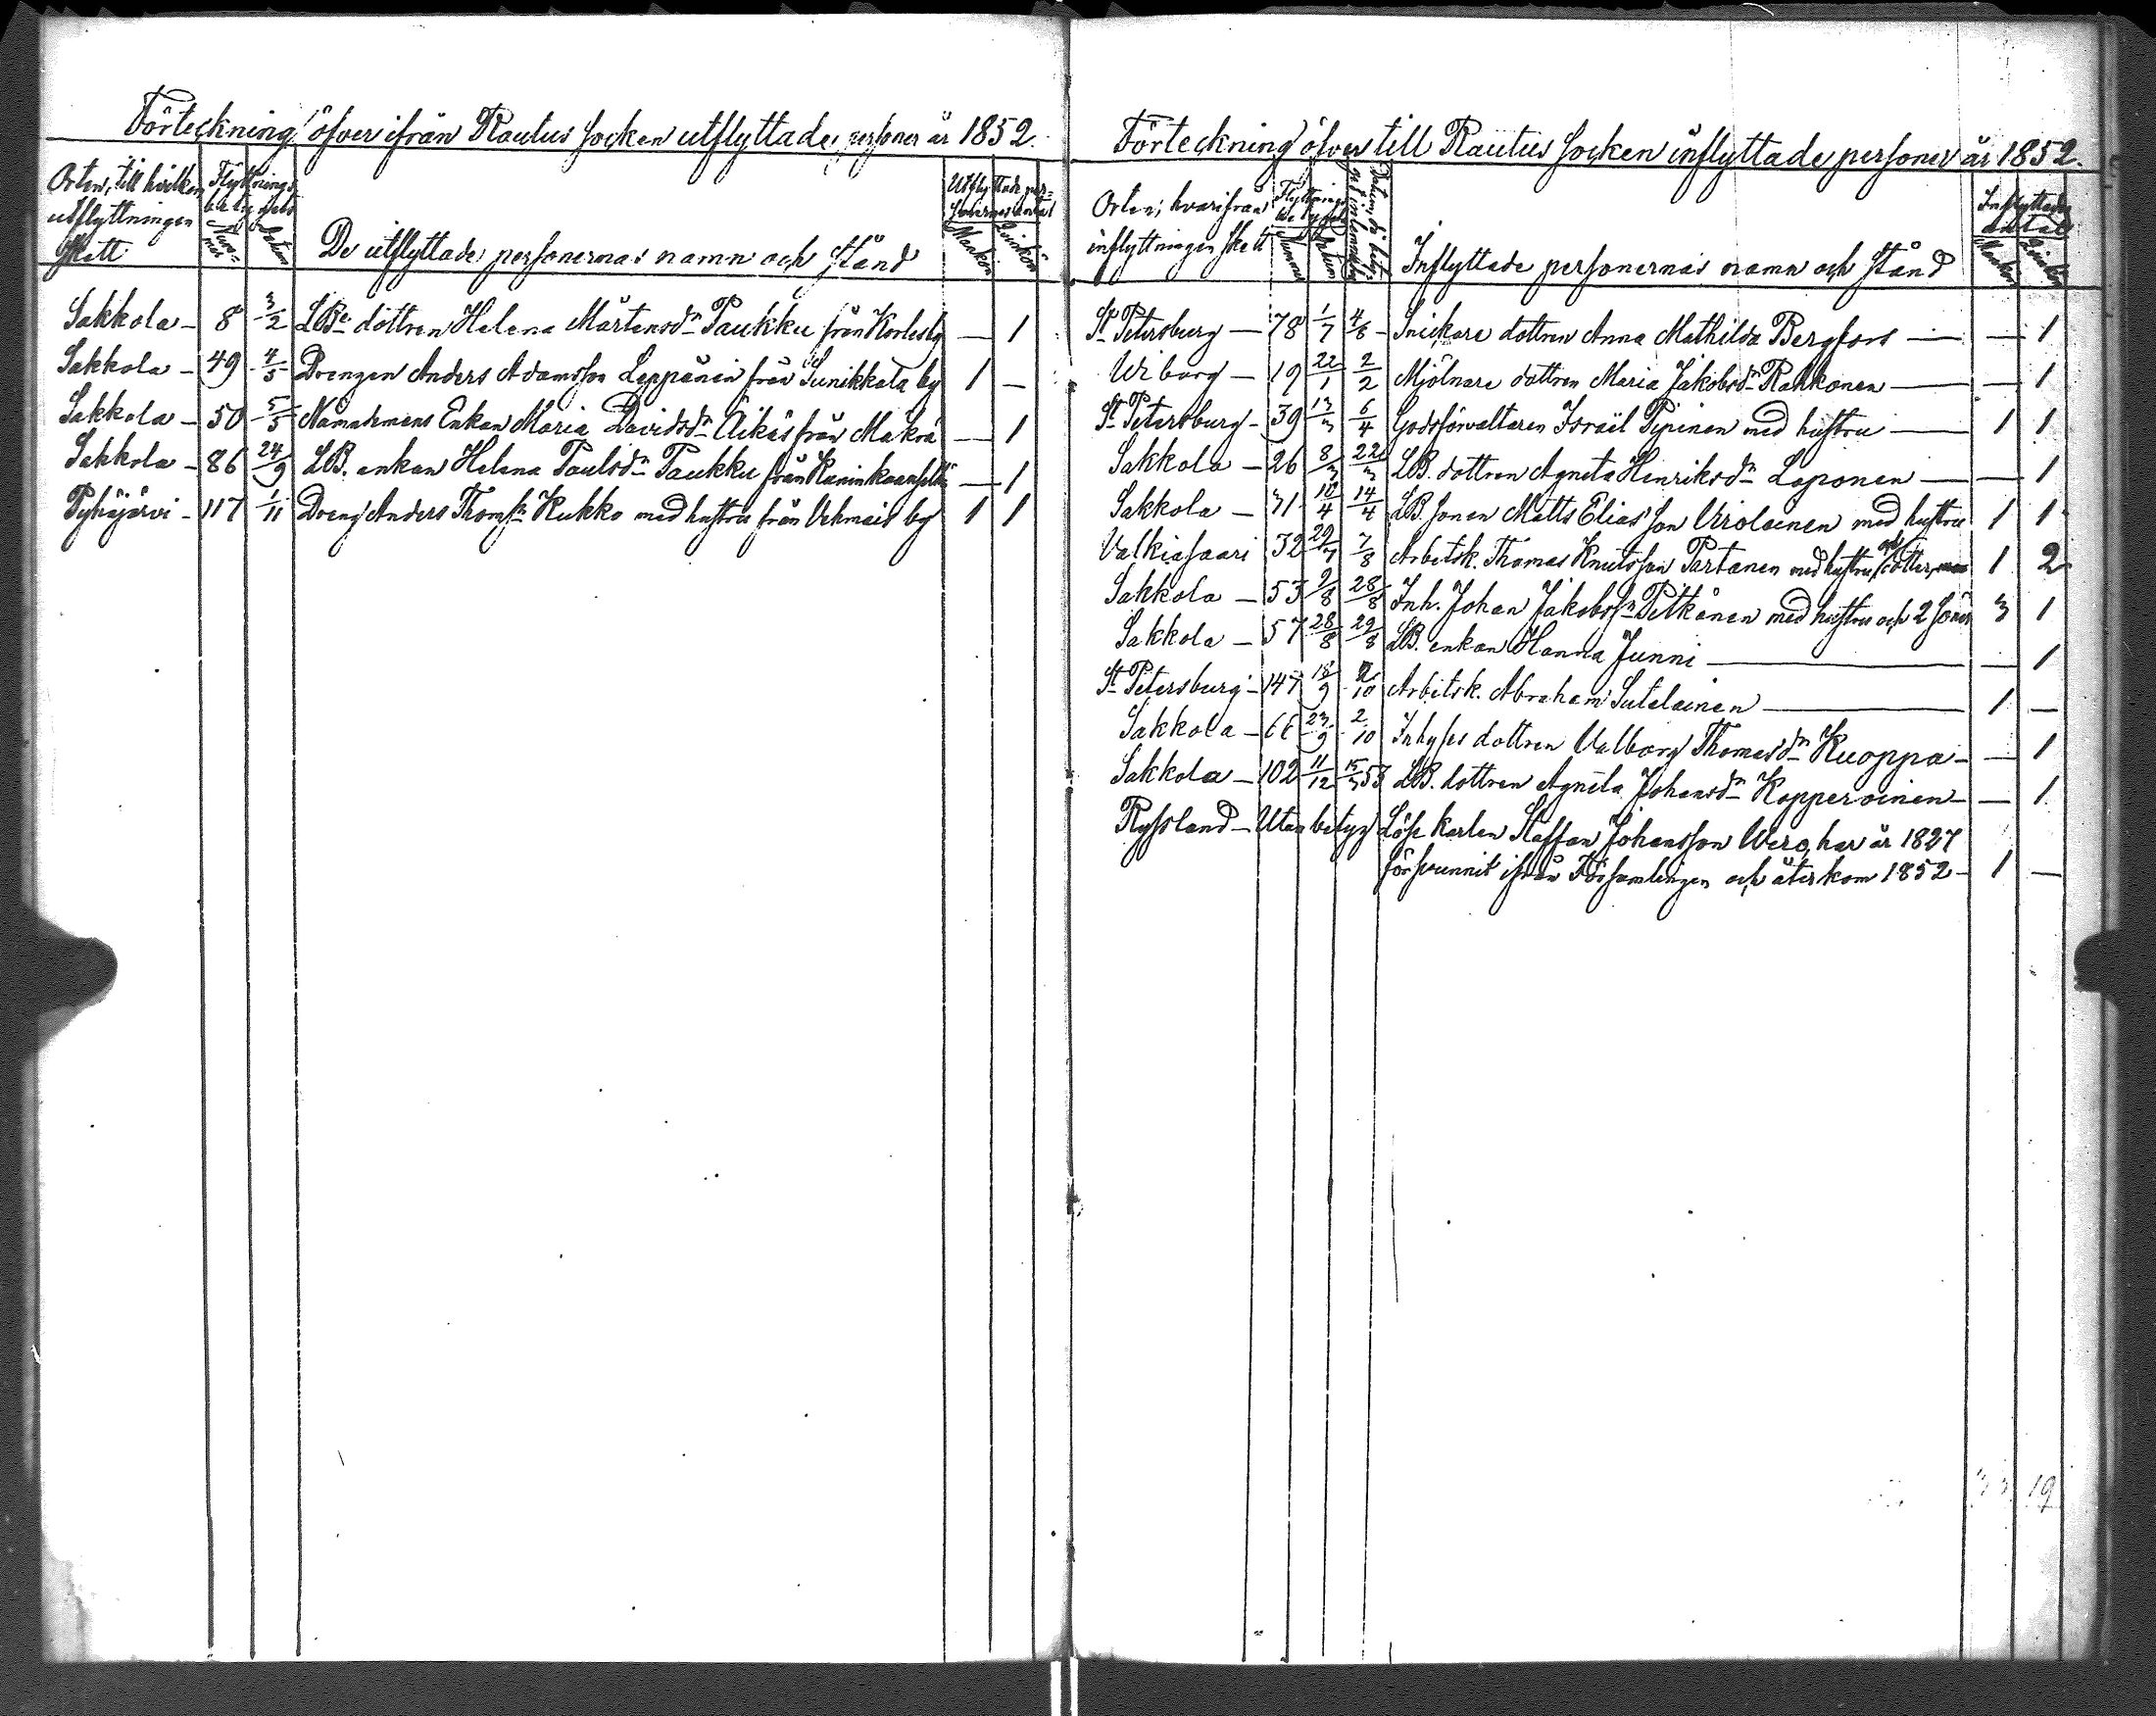 Förteckning öfver ifrån Rautus socken utflyttade personer år 1852.
Orten, till hvilken utflyttningen skett
Flyttnings betygets
Nummer
Datum
De utflyttade personernas namn och stånd
Utflyttade personernas antal
Mankön
Qvinkön
Sakkola – 8 3/2 LBe dottren Helena Mårtensdn Paukku från Korlesby — 1
Sakkola – 49 4/5 Drengen Anders Adamsson Leppänen från Sunikkala by 1 —
Sakkola – 50 5/5 Enkan Maria Davidsdn Äikäs från Makrä — 1
Sakkola – 86 24/9 LB. enkan Helena Paulsdn Paukku från — 1
Pyhäjärvi – 117 1/11 Dreng Anders Thomsn Kukko med hustru från Vehmais by 1 1
Förteckning öfver till Rautus socken inflyttade personer år 1852.
Orten, hvarifrån inflyttningen skett
Flyttnings betygets
Nummer
Datum
Inflyttade personernas namn och stånd
Inflyttades antal
Mankön
Qvinkön
St Petersburg — 78 1/7 4/8 Snickare dottren Anna Mathilda Bergfors — — 1
Wiborg — 19 22/1 2/2 Mjölnare dottren Maria Jakobsdn Rahkonen — — 1
St Petersburg – 39 13/3 6/4 Godsförvaltaren Israël Pipinen med hustru — 1 1
Sakkola — 26 8/3 22/3 LB. dottren Agneta Henriksdn Loponen — — 1
Sakkola — 31 10/4 14/4 LB sonen Matts Eliasson Wirolainen med hustru 1 1
Valkiasaari 32 29/7 7/8 Arbetsk. Thomas Knutsson Partanen med hustru och dotter 1 2
Sakkola — 53 2/8 28/8 Inh. Johan Jakobssn Pitkänen med hustru och 2 söner 3 1
Sakkola — 57 28/8 29/8 LB. enkan Hanna Junni — — 1
St Petersburg – 147 18/9 2/10 Arbetsk. Abraham Sutelainen — 1 —
Sakkola — 66 23/9 2/10 Inhyses dottren Valborg Thomasdn Kuoppa — — 1
Sakkola — 102 11/12 15/3 53 LB. dottren Agneta Johansdn Kopperoinen — — 1
Ryssland — Utan betyg Löse karlen Staffan Johansson Wero, har år 1827
försvunnit ifrån Församlingen och återkom 1852 — 1 —
19